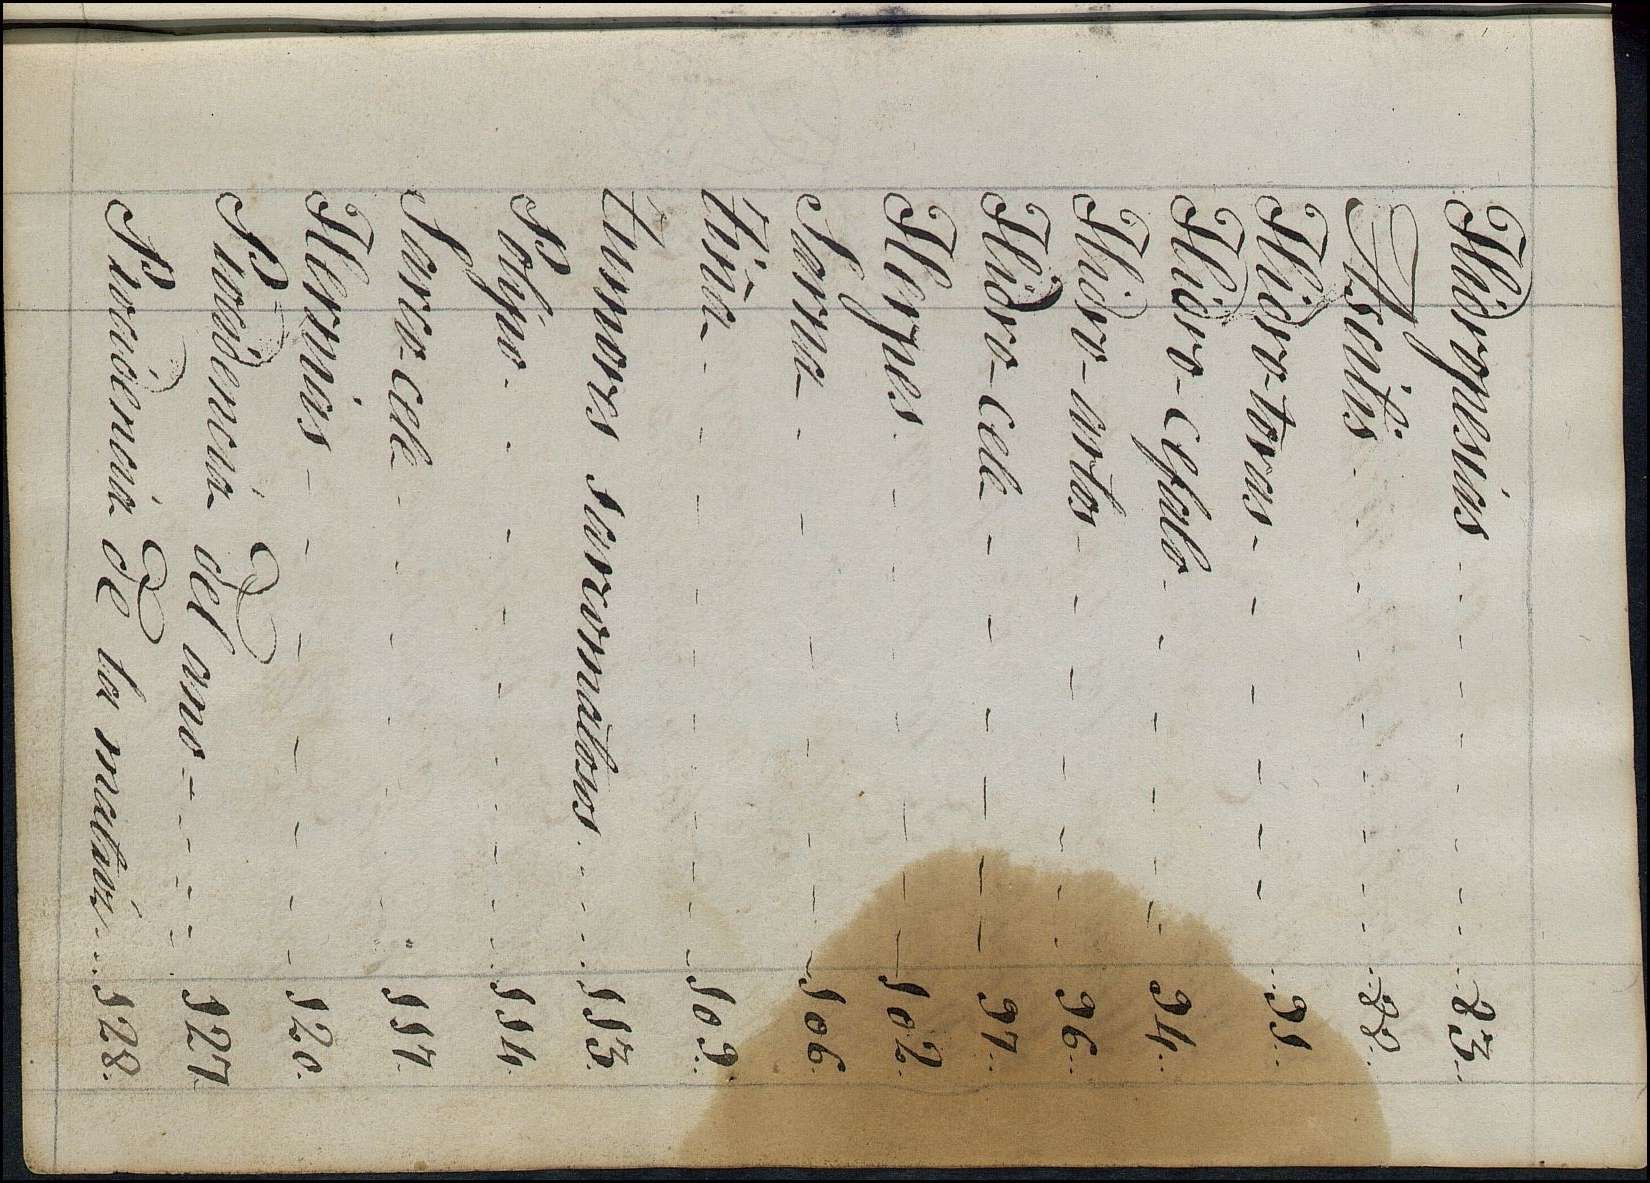 Hidropesias ..... 83..
Ascitis ..... 88..
Hidro-toras ..... 91..
Hidro-cefalo ..... 94..
Hidro-artos ..... 96..
Hidro-cele ..... 97..
Herpes ..... 102..
Sarna ..... 106.
tiña ..... 109..
tumores sarcomatosos ..... 113.
Polipo ..... 114.
Sarco-cele ..... 117.
Hernias ..... 120.
Procidencia del ano ..... 127
Procidencia de la matris ..... 128.